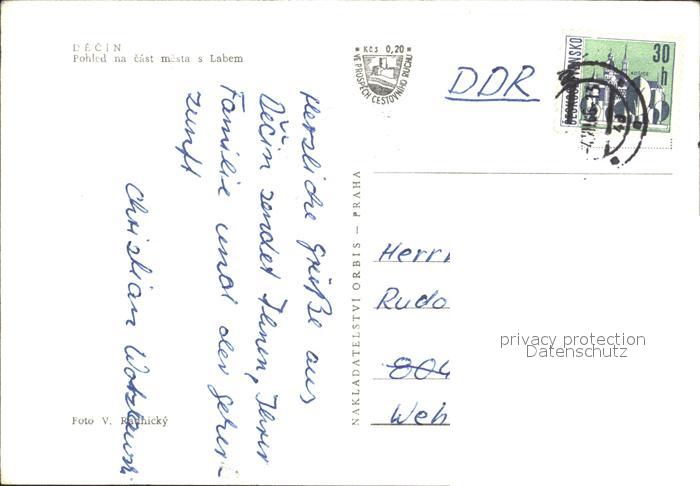 DĚČÍN
Pohled na část města s Labem
Kčs 0,20
VE PROSPĚCH CESTOVNÍHO RUCHU
DDR
ČESKOSLOVENSKO
30
h
Herzliche Grüße aus
Děčín sendet Ihnen, Ihrer
Familie und der
zunft
Christian
NAKLADATELSTVÍ ORBIS — PRAHA
Herrn
Rudo
Weh
privacy protection
Datenschutz
Foto V. Radnický